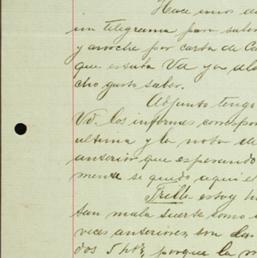 Hace unos d
un telegrama para saber
y anoche por carta de Ca
que estuba Vd ya ali
cho gusto saber.
Adjunto tengo
Vd. los informes corresp
ultima y la nota d
anterior que esperando
menza se quedo aqui el
Trelle estoy h
tan mala suerte como e
veces anteriores, son da
dos 5 htz, porque la m